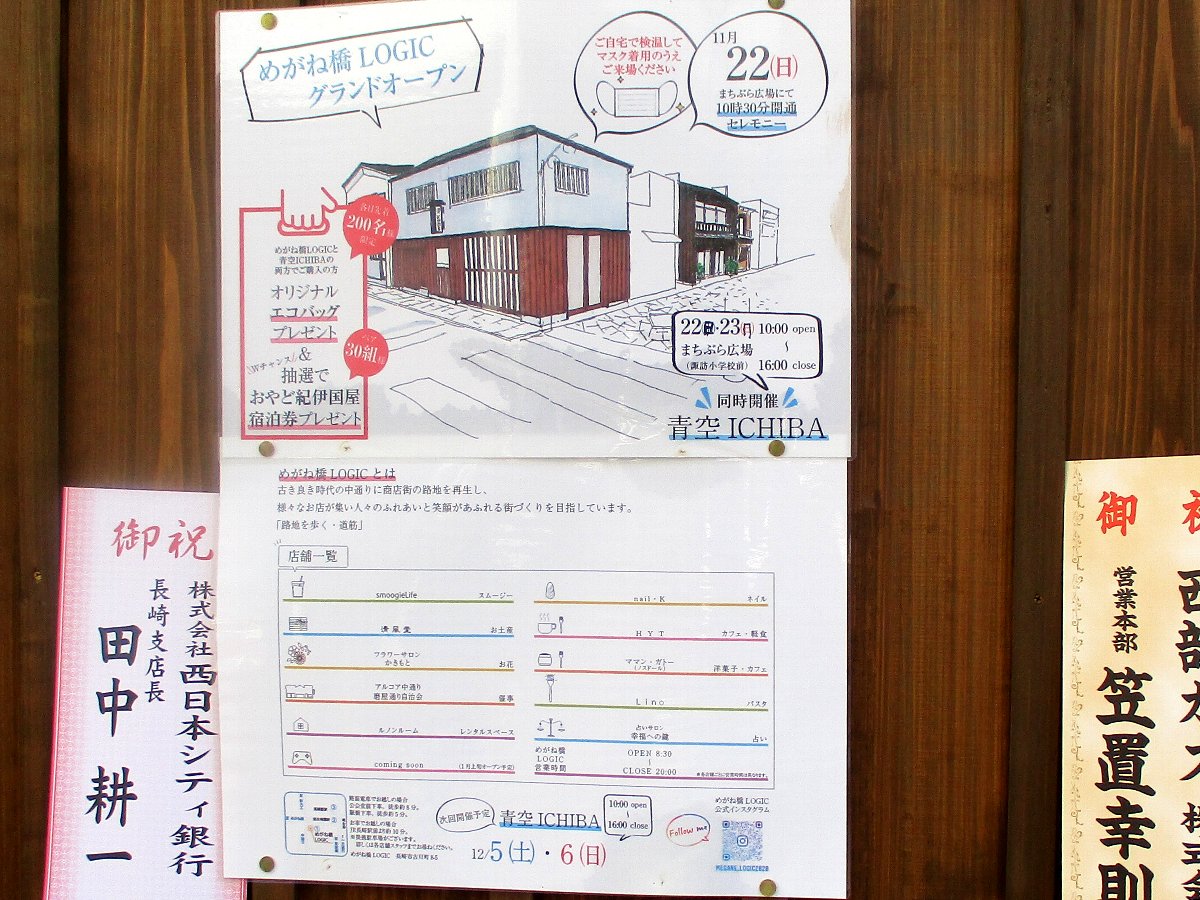 めがね橋 LOGIC
グランドオープン
ご自宅で検温して
マスク着用のうえ
ご来場ください
11月
22(日)
まちぶら広場にて
10時30分開通
セレモニー
各日先着
200名様
限定
めがね橋LOGICと
青空ICHIBAの
両方でご購入の方
オリジナル
エコバッグ
プレゼント
&
Wチャンス
ペア
30組様
抽選で
おやど紀伊国屋
宿泊券プレゼント
22(日)・23(月) 10:00 open
まちぶら広場 〜
(諏訪小学校前) 16:00 close
同時開催
青空 ICHIBA
めがね橋 LOGIC とは
古き良き時代の中通りに商店街の路地を再生し、
様々なお店が集い人々のふれあいと笑顔があふれる街づくりを目指しています。
「路地を歩く・道筋」
店舗一覧
smoogieLife スムージー
清風堂 お土産
フラワーサロン
かきもと お花
アルコア中通り
磨屋通り自治会 催事
ルノンルーム レンタルスペース
coming soon (1月上旬オープン予定)
nail・K ネイル
HYT カフェ・軽食
ママン・ガトー
(ノスドール) 洋菓子・カフェ
Lino パスタ
占いサロン
幸福への鍵 占い
めがね橋
LOGIC
営業時間
OPEN 8:30
〜
CLOSE 20:00
※各店舗ごとに営業時間は異なります。
路面電車でお越しの場合
お車でお越しの場合
めがね橋 LOGIC
次回開催予定
青空 ICHIBA
10:00 open
〜
16:00 close
12/5(土)・6(日)
Follow me
めがね橋 LOGIC
公式インスタグラム
MEGANE_LOGIC2020
御祝
株式会社 西日本シティ銀行
長崎支店長
田中耕一
御祝
営業本部 笠置幸則